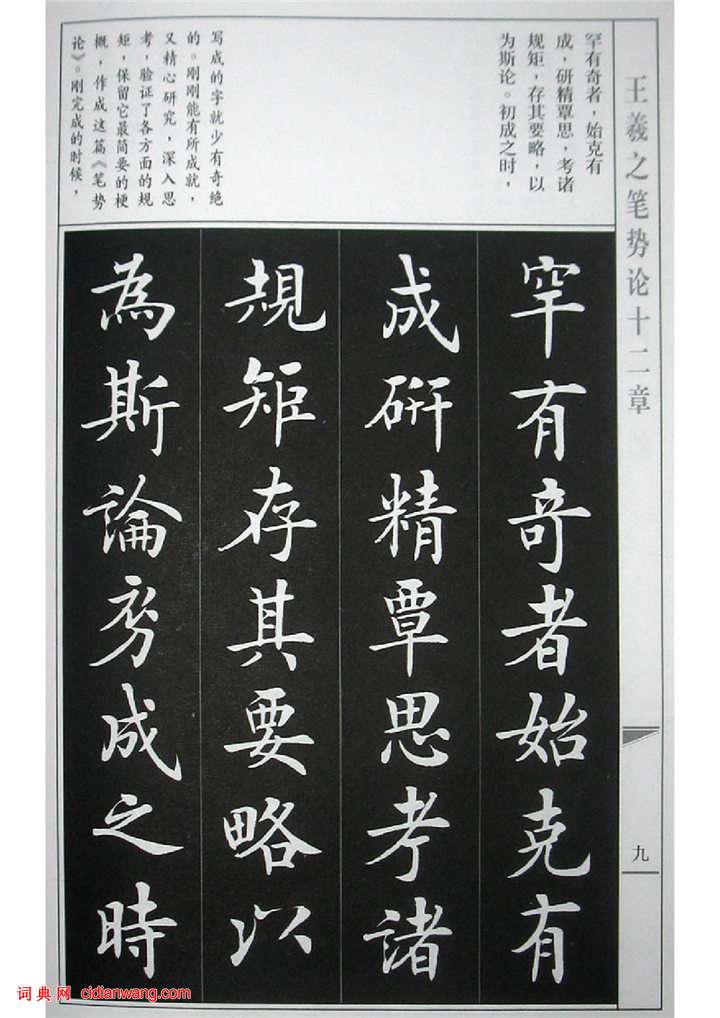 王羲之笔势论十二章
罕有奇者，始克有
成，研精覃思，考诸
规矩，存其要略，以
为斯论。初成之时，
写成的字就少有奇绝
的。刚刚能有所成就，
又精心研究，深入思
考，验证了各方面的规
矩，保留它最简要的梗
概，作成这篇《笔势
论》。刚完成的时候，
罕有奇者始克有
成研精覃思考諸
規矩存其要略以
為斯論初成之時
九
词典网 cidianwang.com